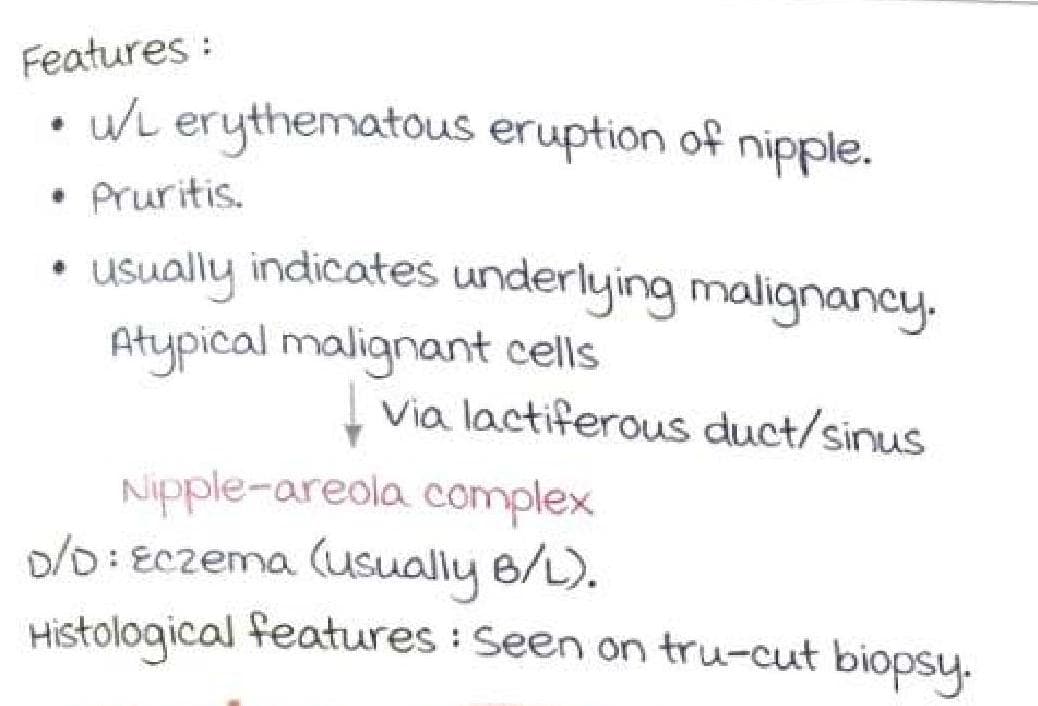 Features :
• U/L erythematous eruption of nipple.
• Pruritis.
• usually indicates underlying malignancy.
Atypical malignant cells
↓ Via lactiferous duct/sinus
Nipple-areola complex
D/D : Eczema (usually B/L).
Histological features : Seen on tru-cut biopsy.